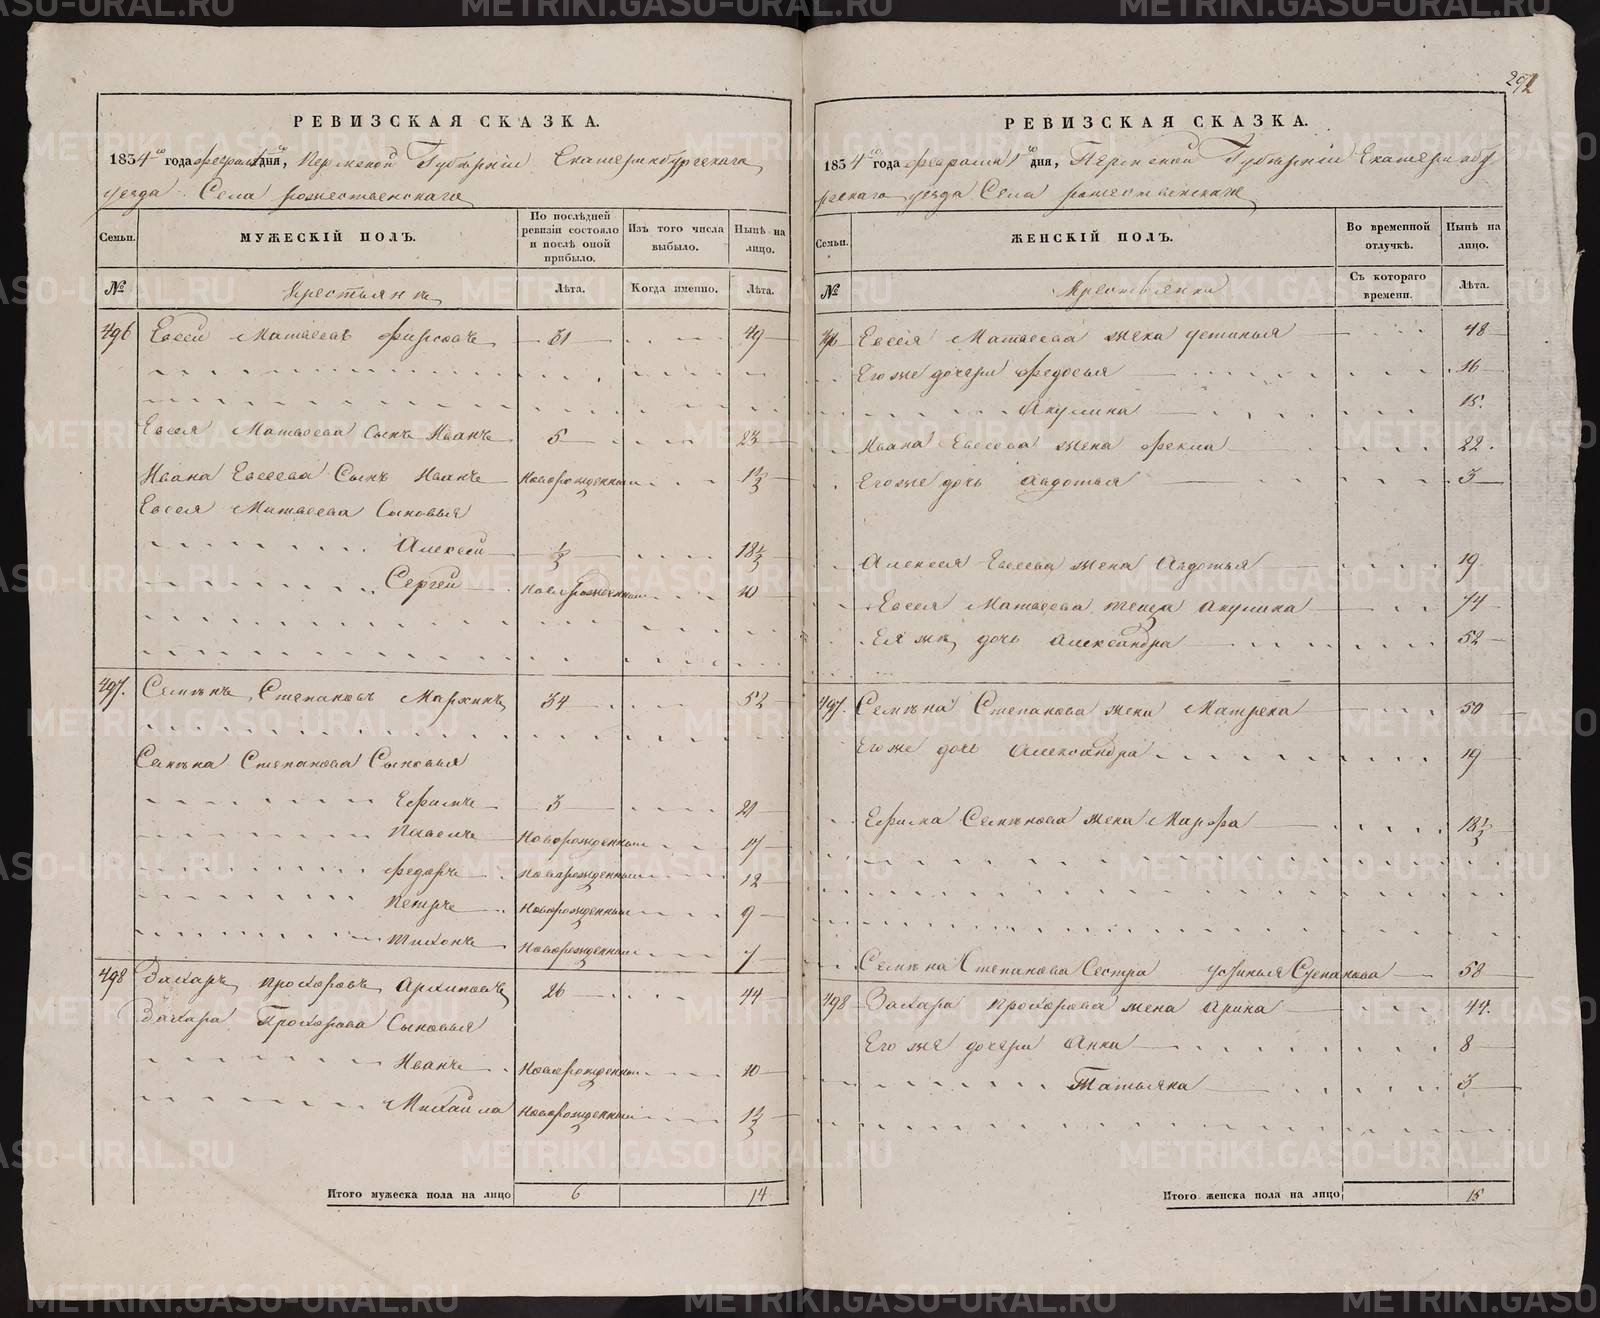 292
РЕВИЗСКАЯ СКАЗКА.
1834го года февраля дня, Пермской Губерніи Екатеринбургскаго
уезда Села рожественскаго
Семьи.
МУЖЕСКІЙ ПОЛЪ.
По послѣдней ревизіи состояло и послѣ оной прибыло.
Изъ того числа выбыло.
Нынѣ на лицо.
№
Крестьяне
Лѣта.
Когда именно.
Лѣта.
496 Евсей Матвеевъ Фирсовъ 31 49
Евсея Матвеева сынъ Иванъ 5 23
Ивана Евсеева Сынъ Иванъ Новорожденный 1½
Евсея Матвеева Сыновья
Алексей ½ 18½
Сергей Новорожденный 10
497. Семенъ Степановъ 34 52
Семена Степанова Сыновья
Ефимъ 3 21
Павелъ Новорожденный 17
Федоръ Новорожденный 12
Петръ Новорожденный 9
Тихонъ Новорожденный 7
498 Захаръ Прохоровъ Архиповъ 26 44
Захара Прохорова Сыновья
Иванъ Новорожденный 10
Михайла Новорожденный 1½
Итого мужеска пола на лицо 6 14
РЕВИЗСКАЯ СКАЗКА.
1834го года февраля дня, Пермской Губерніи Екатеринбу
ргскаго уезда Села рожественскаго
Семьи.
ЖЕНСКІЙ ПОЛЪ.
Во временной отлучкѣ.
Нынѣ на лицо.
№
Крестьянки
Съ котораго времени.
Лѣта.
496 Евсея Матвеева жена Устинья 48
Его же дочери Федосья 16
Акулина 15.
Ивана Евсеева жена Фекла 22.
Его же дочь Авдотья 3
Алексея Евсеева жена Авдотья 19
Евсея Матвеева теща Акулина 74
Ея же дочь Александра 52
497. Семена Степанова жена Матрена 50
Его же дочь Александра 19
Ефима Семенова жена Марфа 18½
Семена Степанова Сестра Устинья Степанова 58
498 Захара Прохорова жена Арина 44.
Его же дочери Анна 8
Татьяна 3
Итого женска пола на лицо 15
METRIKI.GASO-URAL.RU